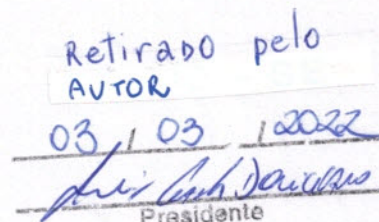 Retirado pelo
AUTOR
03 / 03 / 2022
Presidente